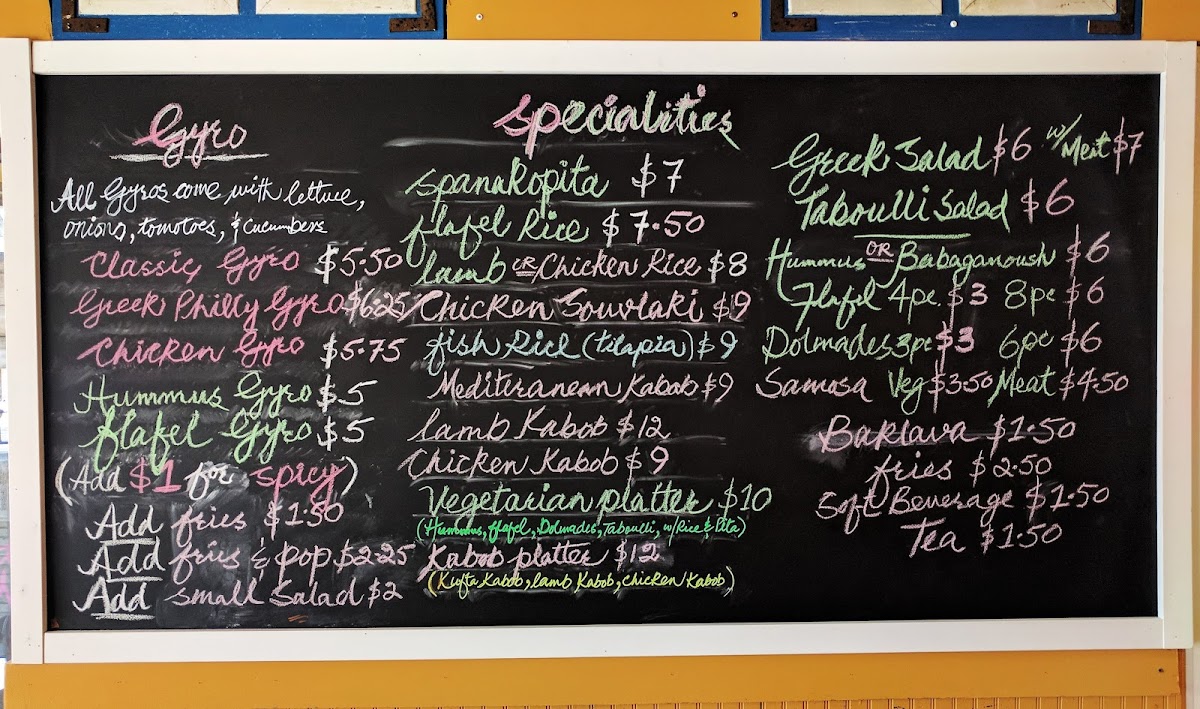 Gyro
All Gyros come with lettuce,
onions, tomatoes, & cucumbers
Classic Gyro $5.50
Greek Philly Gyro $6.25
Chicken Gyro $5.75
Hummus Gyro $5
flafel Gyro $5
(Add $1 for spicy)
Add fries $1.50
Add fries & pop $2.25
Add small Salad $2
Specialities
Spanakopita $7
flafel Rice $7.50
lamb OR Chicken Rice $8
Chicken Souvlaki $9
fish Rice (tilapia) $9
Mediteranean Kabob $9
lamb Kabob $12
Chicken Kabob $9
Vegetarian platter $10
(Hummus, flafel, Dolmades, Taboulli, w/Rice & Pita)
Kabob platter $12
(Kufta Kabob, lamb Kabob, chicken Kabob)
Greek Salad $6 w/ Meat $7
Taboulli Salad $6
Hummus OR Babaganoush $6
flafel 4pc $3 8pc $6
Dolmades 3pc $3 6pc $6
Samosa Veg $3.50 Meat $4.50
Baklava $1.50
fries $2.50
Soft Beverage $1.50
Tea $1.50